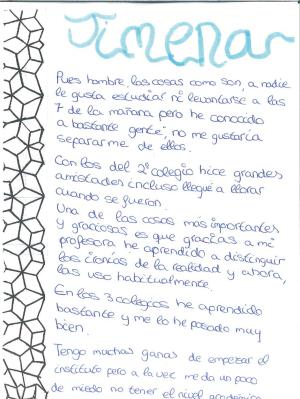 Jimena
Pues hombre, las cosas como son, a nadie
le gusta estudiar ni levantarse a las
7 de la mañana pero he conocido
a bastante gente, no me gustaría
separarme de ellos.
Con los del 2º colegio hice grandes
amistades incluso llegué a llorar
cuando se fueron.
Una de las cosas más importantes
y graciosas es que gracias a mi
profesora he aprendido a distinguir
las ironías de la realidad y ahora,
las uso habitualmente.
En los 3 colegios he aprendido
bastante y me lo he pasado muy
bien.
Tengo muchas ganas de empezar el
instituto pero a la vez me da un poco
de miedo no tener el nivel académico